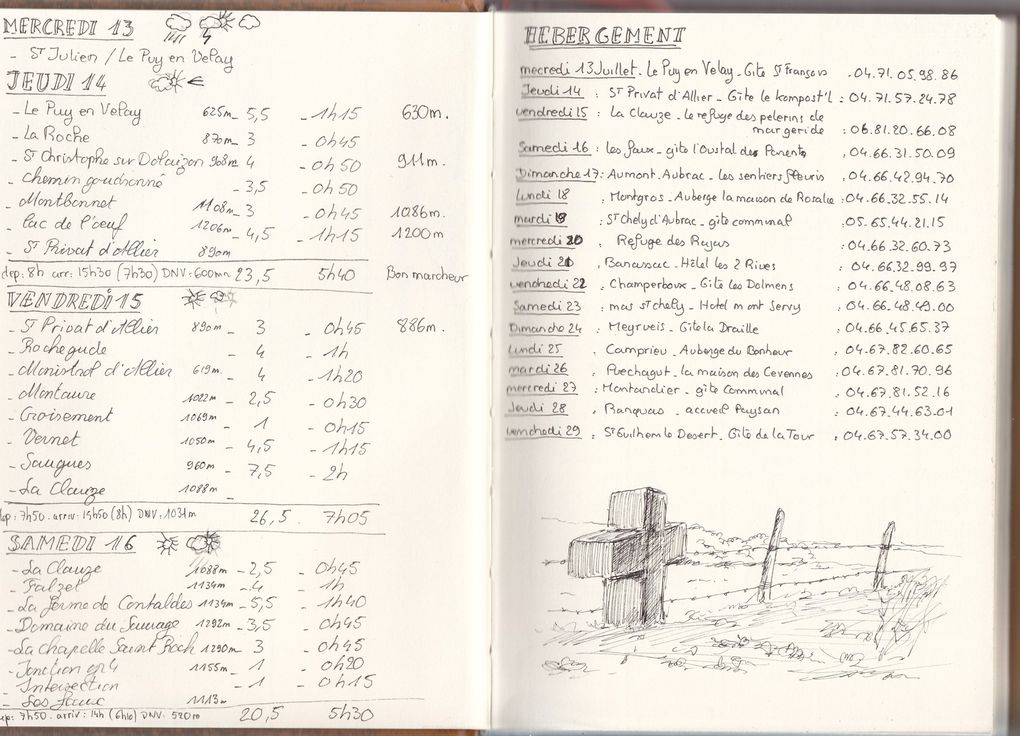 MERCREDI 13
- St Julien / Le Puy en Velay
JEUDI 14
- Le Puy en Velay 625m - 5,5 - 1h15 630m.
- La Roche 870m - 3 - 0h45
- St Christophe sur Dolaizon 908m - 4 - 0h50 911m.
- Chemin goudronné - 3,5 - 0h50
- Montbonnet 1108m - 3 - 0h45 1086m.
- Lac de l'oeuf 1206m - 4,5 - 1h15 1200m
- St Privat d'Allier 890m
dep: 8h arr: 15h30 (7h30) DNV: 600m 23,5 5h40 Bon marcheur
VENDREDI 15
- St Privat d'Allier 890m - 3 - 0h45 886m.
- Rochegude - 4 - 1h
- Monistrol d'Allier 619m. - 4 - 1h20
- Montaure 1022m - 2,5 - 0h30
- Croisement 1069m - 1 - 0h15
- Vernet 1050m - 4,5 - 1h15
- Saugues 960m - 7,5 - 2h
- La Clauze 1088m -
dep: 7h50. arriv: 15h50 (8h) DNV: 1031m 26,5. 7h05
SAMEDI 16
- La Clauze 1088m - 2,5 - 0h45
- Falzet 1134m - 4 - 1h
- La ferme de Contaldes 1134m - 5,5 - 1h40
- Domaine du Sauvage 1292m - 3,5 - 0h45
- La chapelle Saint Roch 1290m - 3 - 0h45
- Jonction gr4 1155m - 1 - 0h20
- Intersection - 1 - 0h15
- Les Faux 1113m -
dep: 7h50. arriv: 14h (6h10) DNV: 520m 20,5 5h30
HEBERGEMENT
mecredi 13 Juillet. Le Puy en Velay - Gite St François . 04.71.05.98.86
Jeudi 14 : St Privat d'Allier - Gîte le kompost'l : 04.71.57.24.78
vendredi 15 : La Clauze - le refuge des pelerins de
margeride : 06.81.20.66.08
Samedi 16 : les faux - gîte l'Oustal des Parents : 04.66.31.50.09
Dimanche 17 : Aumont. Aubrac - les sentiers fleuris : 04.66.42.94.70
Lundi 18 . Montgros - Auberge la maison de Rosalie : 04.66.32.55.14
mardi 19 : St Chely d'Aubrac - gite communal . 05.65.44.21.15
mercredi 20 . Refuge des Rajas : 04.66.32.60.73
Jeudi 21 . Banassac - Hôtel les 2 Rives : 04.66.32.99.97
vendredi 22 . Champerboux - Gîte les Dolmens : 04.66.48.08.63
Samedi 23 : mas St chely - Hotel mont Servy : 04.66.48.49.00
Dimanche 24 . Meyrueis - Gite la Draille : 04.66.45.65.37
Lundi 25 . Camprieu - Auberge du Bonheur : 04.67.82.60.65
mardi 26 . Puechagut - la maison des Cevennes : 04.67.81.70.96
mercredi 27 . Montardier - gîte Communal : 04.67.81.52.16
Jeudi 28 . Ranquas - accueil Paysan : 04.67.44.63.01
vendredi 29 : St Guilhem le Desert - Gîte de la Tour : 04.67.57.34.00